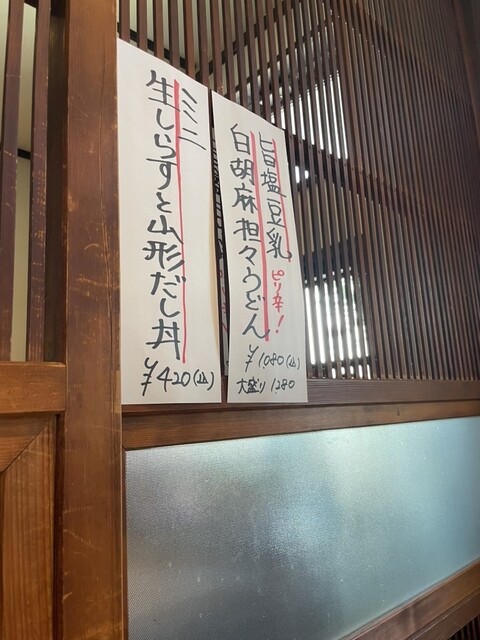 旨塩豆乳
ピリ辛!
白胡麻担々うどん
¥1,080(込)
大盛り 1,280
ミニ
生しらすと山形だし丼
¥420(込)